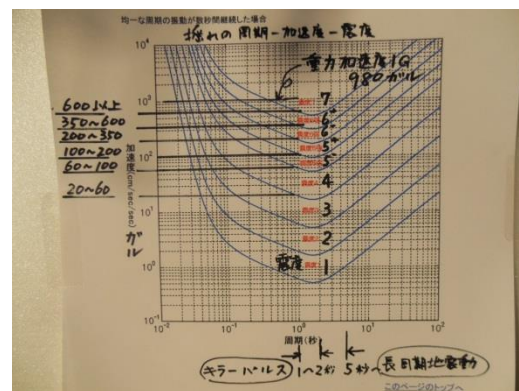 均一な周期の振動が数秒間継続した場合
揺れの周期-加速度-震度
重力加速度1G
980ガル
10⁴
10³
10²
10¹
10⁰
10⁻¹
600以上
350~600
200~350
100~200
60~100
20~60
加速度(cm/sec/sec)
ガル
7
6⁺
6⁻
5⁺
5⁻
4
3
2
震度 1
10⁻² 10⁻¹ 10⁰ 10¹ 10²
周期(秒)
キラーパルス 1~2秒 5秒~ 長周期地震動
このページのトップへ